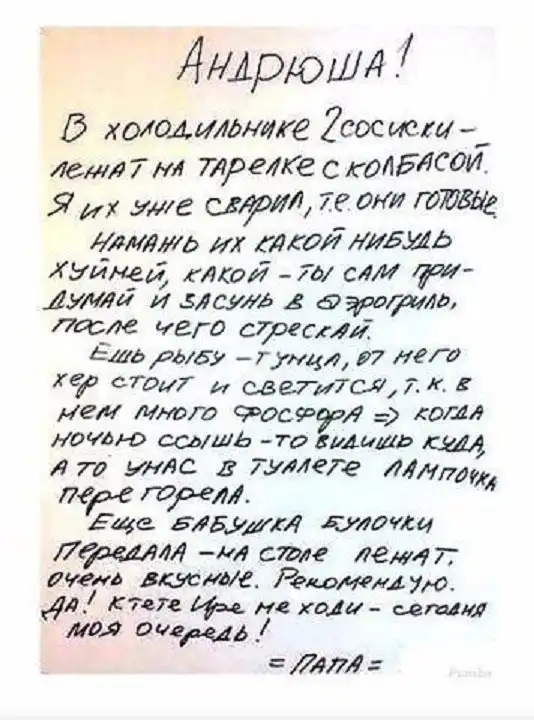 Андрюша!
В холодильнике 2 сосиски –
лежат на тарелке с колбасой.
Я их уже сварил, т.е. они готовые.
Намажь их какой нибудь
хуйнёй, какой – ты сам при-
думай и засунь в аэрогриль,
после чего стрескай.
Ешь рыбу – тунца, от него
хер стоит и светится, т.к. в
нем много фосфора => когда
ночью ссышь – то видишь куда,
а то у нас в туалете лампочка
перегорела.
Еще бабушка булочки
передала – на столе лежат,
очень вкусные. Рекомендую.
Да! К тете Ире не ходи – сегодня
моя очередь!
= Папа =